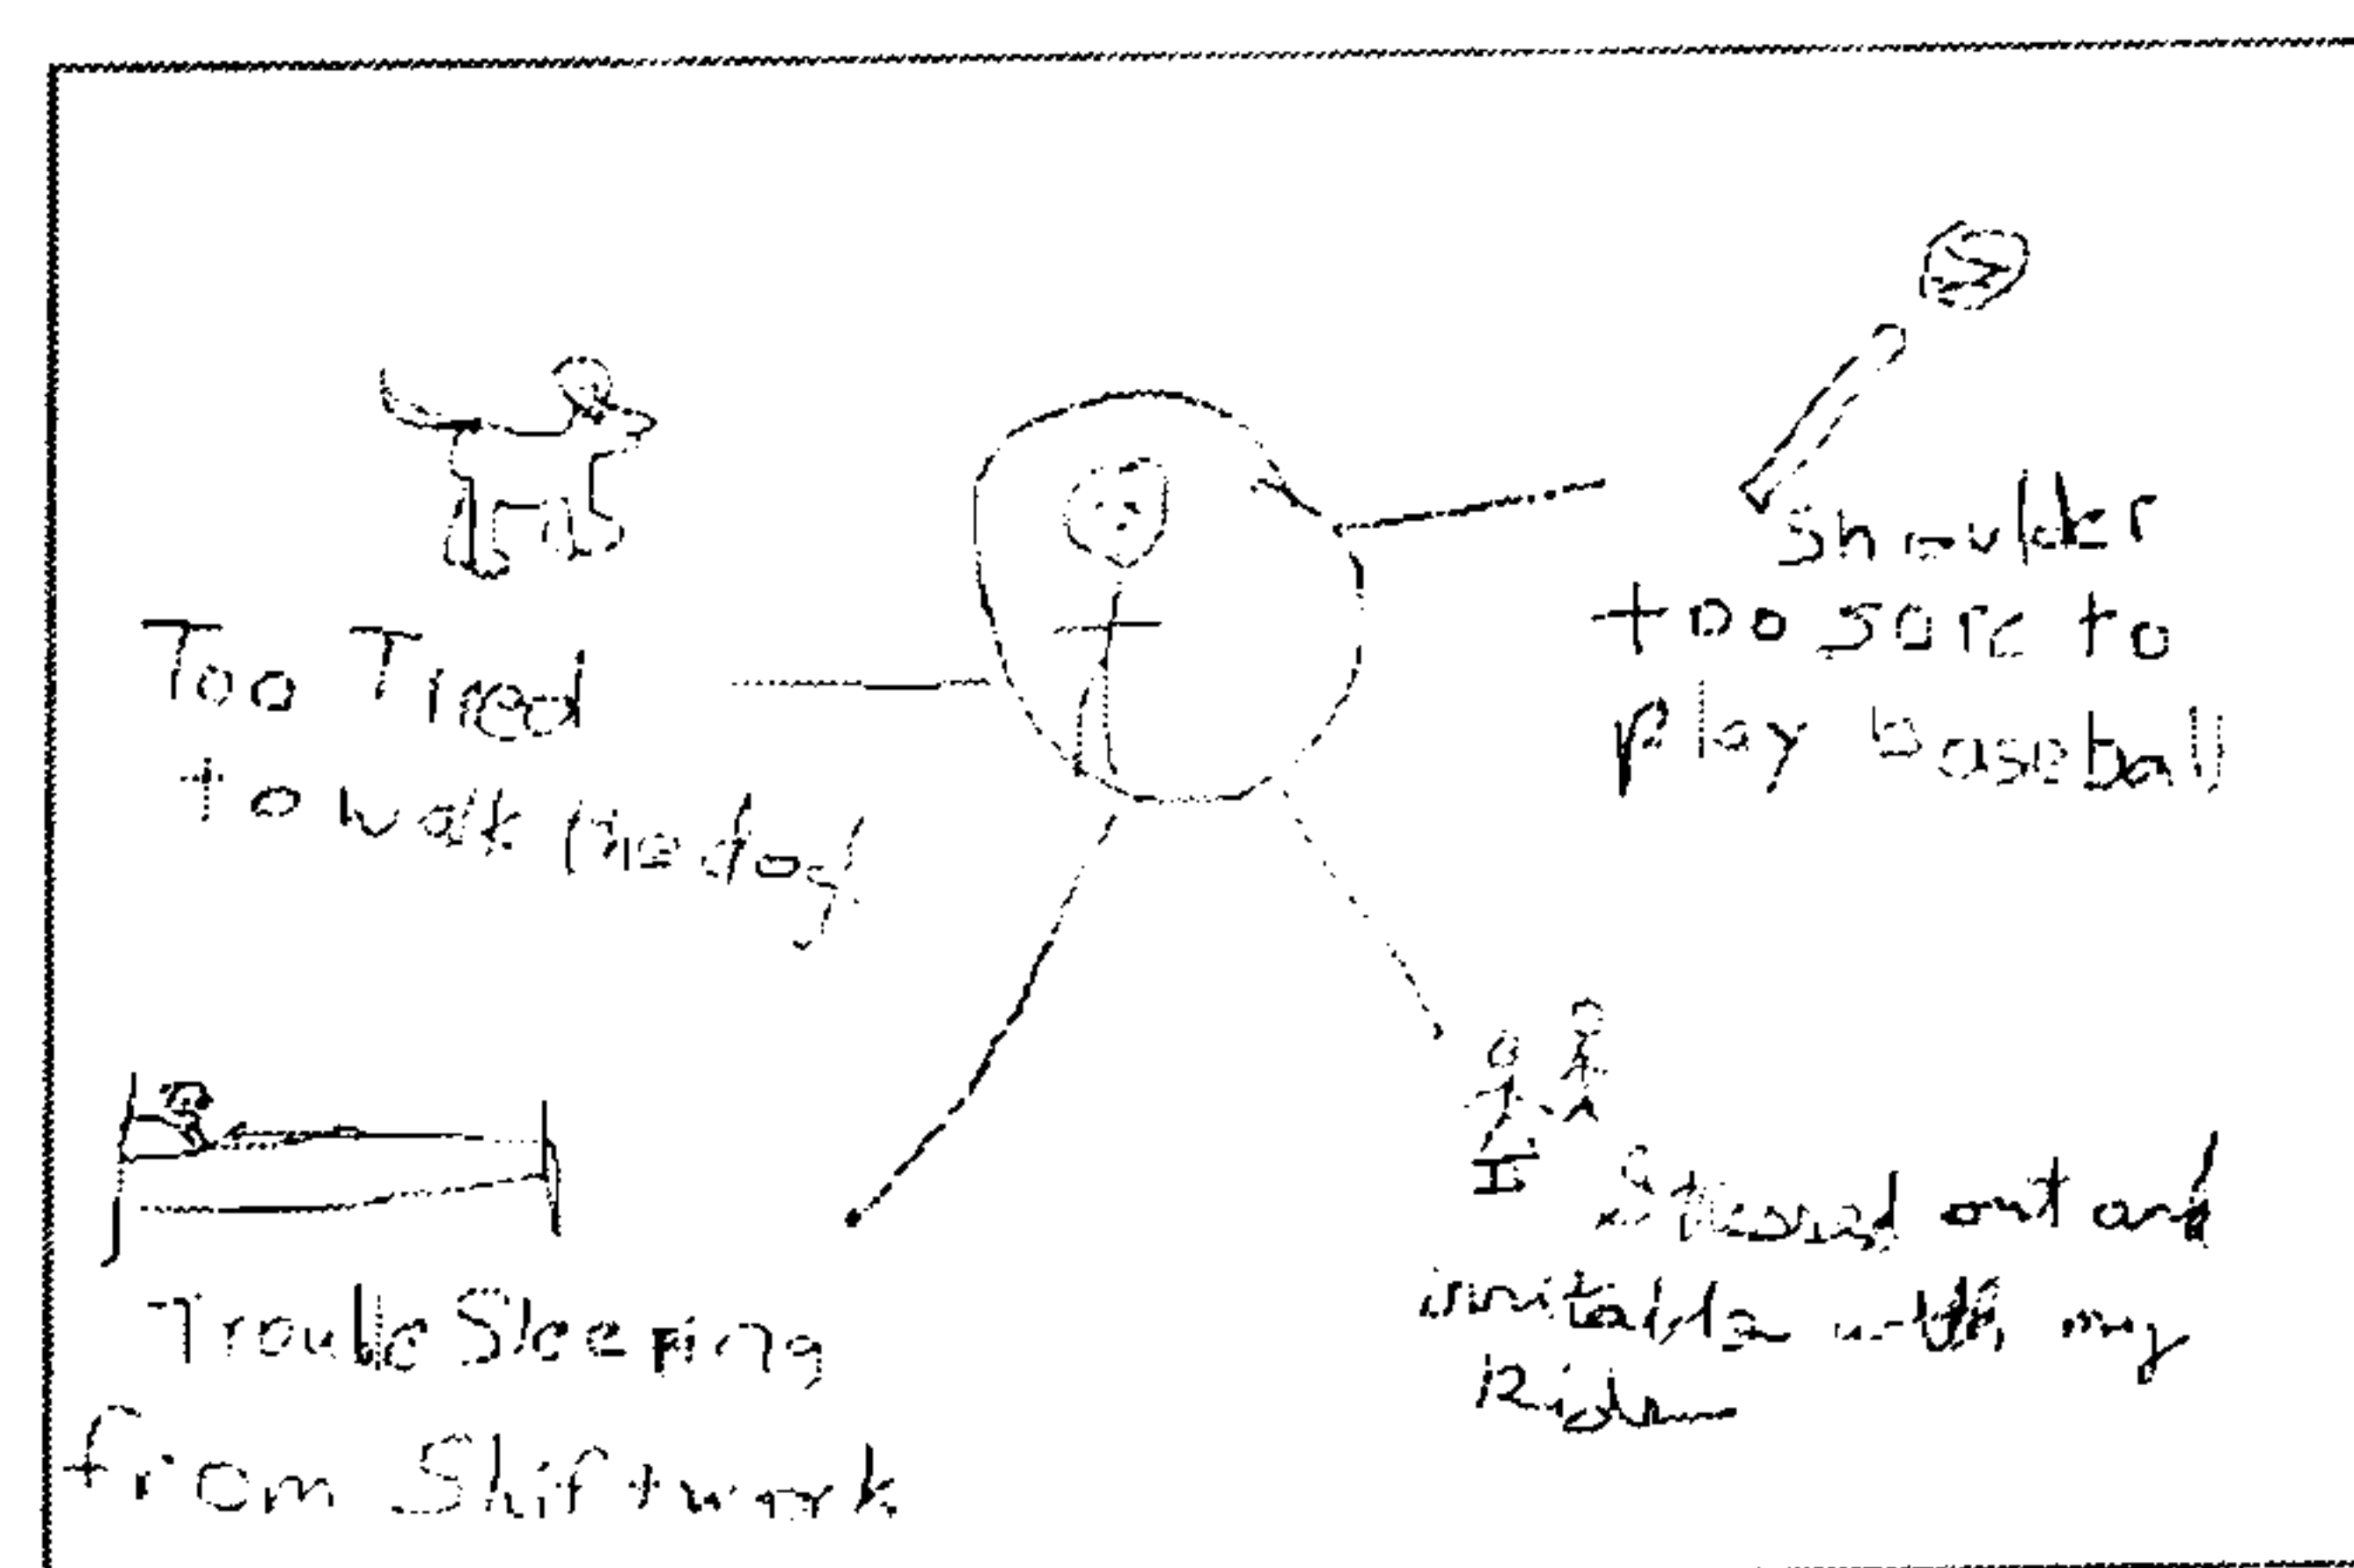 Too Tired
to walk the dog
Shoulder
too sore to
play baseball
Trouble Sleeping
from Shiftwork
Stressed out and
irritable with my
Kids